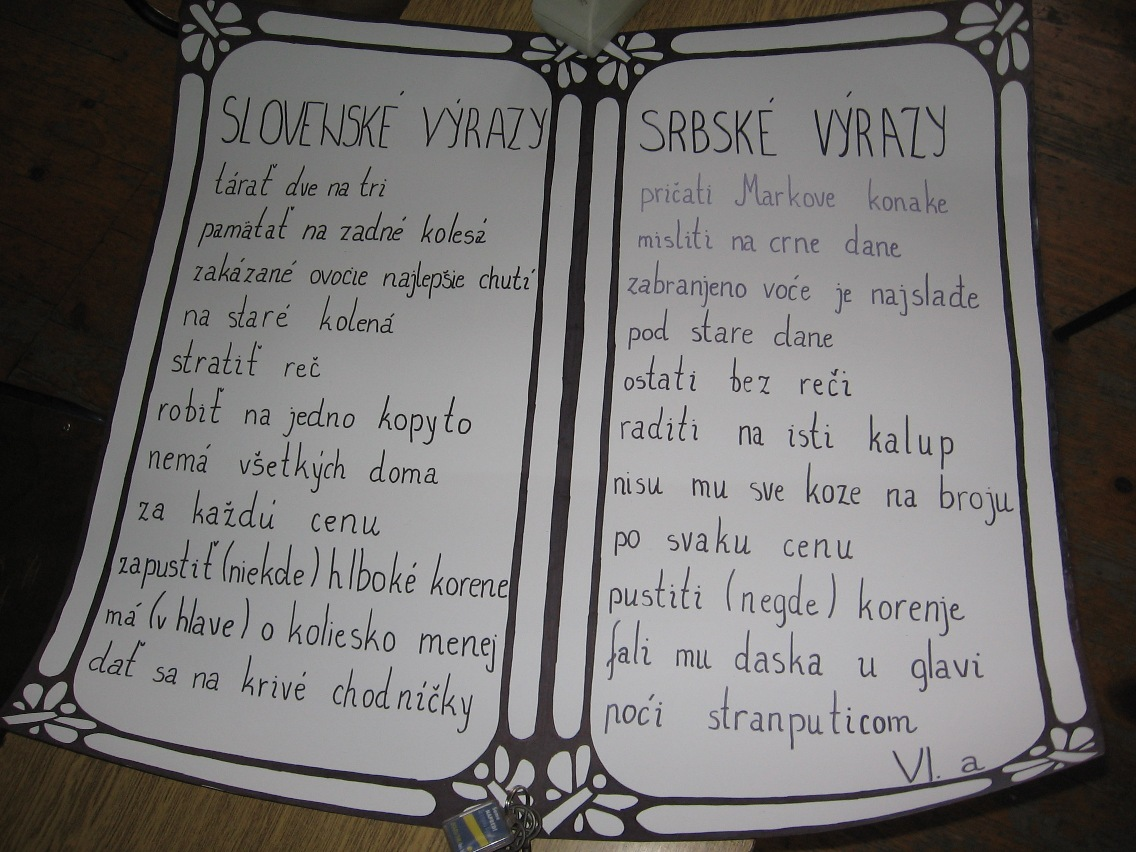 SLOVENSKÉ VÝRAZY
tárať dve na tri
pamätať na zadné kolesá
zakázané ovocie najlepšie chutí
na staré kolená
stratiť reč
robiť na jedno kopyto
nemá všetkých doma
za každú cenu
zapustiť (niekde) hlboké korene
má (v hlave) o koliesko menej
dať sa na krivé chodníčky
SRBSKÉ VÝRAZY
pričati Markove konake
misliti na crne dane
zabranjeno voće je najslađe
pod stare dane
ostati bez reči
raditi na isti kalup
nisu mu sve koze na broju
po svaku cenu
pustiti (negde) korenje
fali mu daska u glavi
poći stranputicom
VI. a